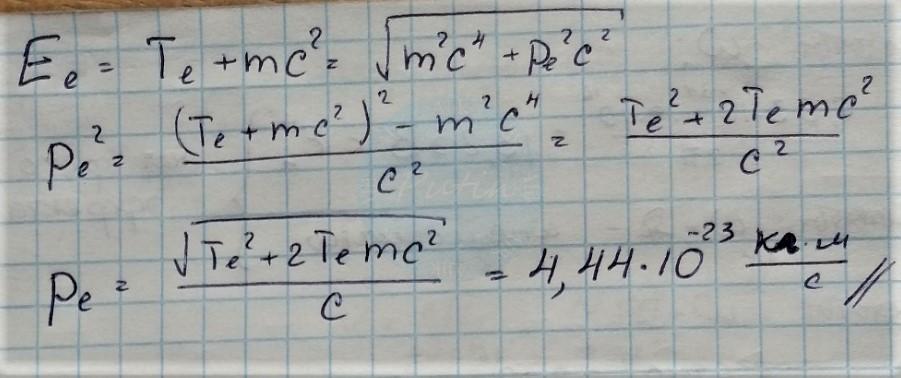 Eₑ = Tₑ + mc² = √(m²c⁴ + pₑ²c²)
pₑ² = ((Tₑ + mc²)² - m²c⁴)/c² = (Tₑ² + 2Tₑmc²)/c²
pₑ = √(Tₑ² + 2Tₑmc²)/c = 4,44·10⁻²³ кг·м/с //